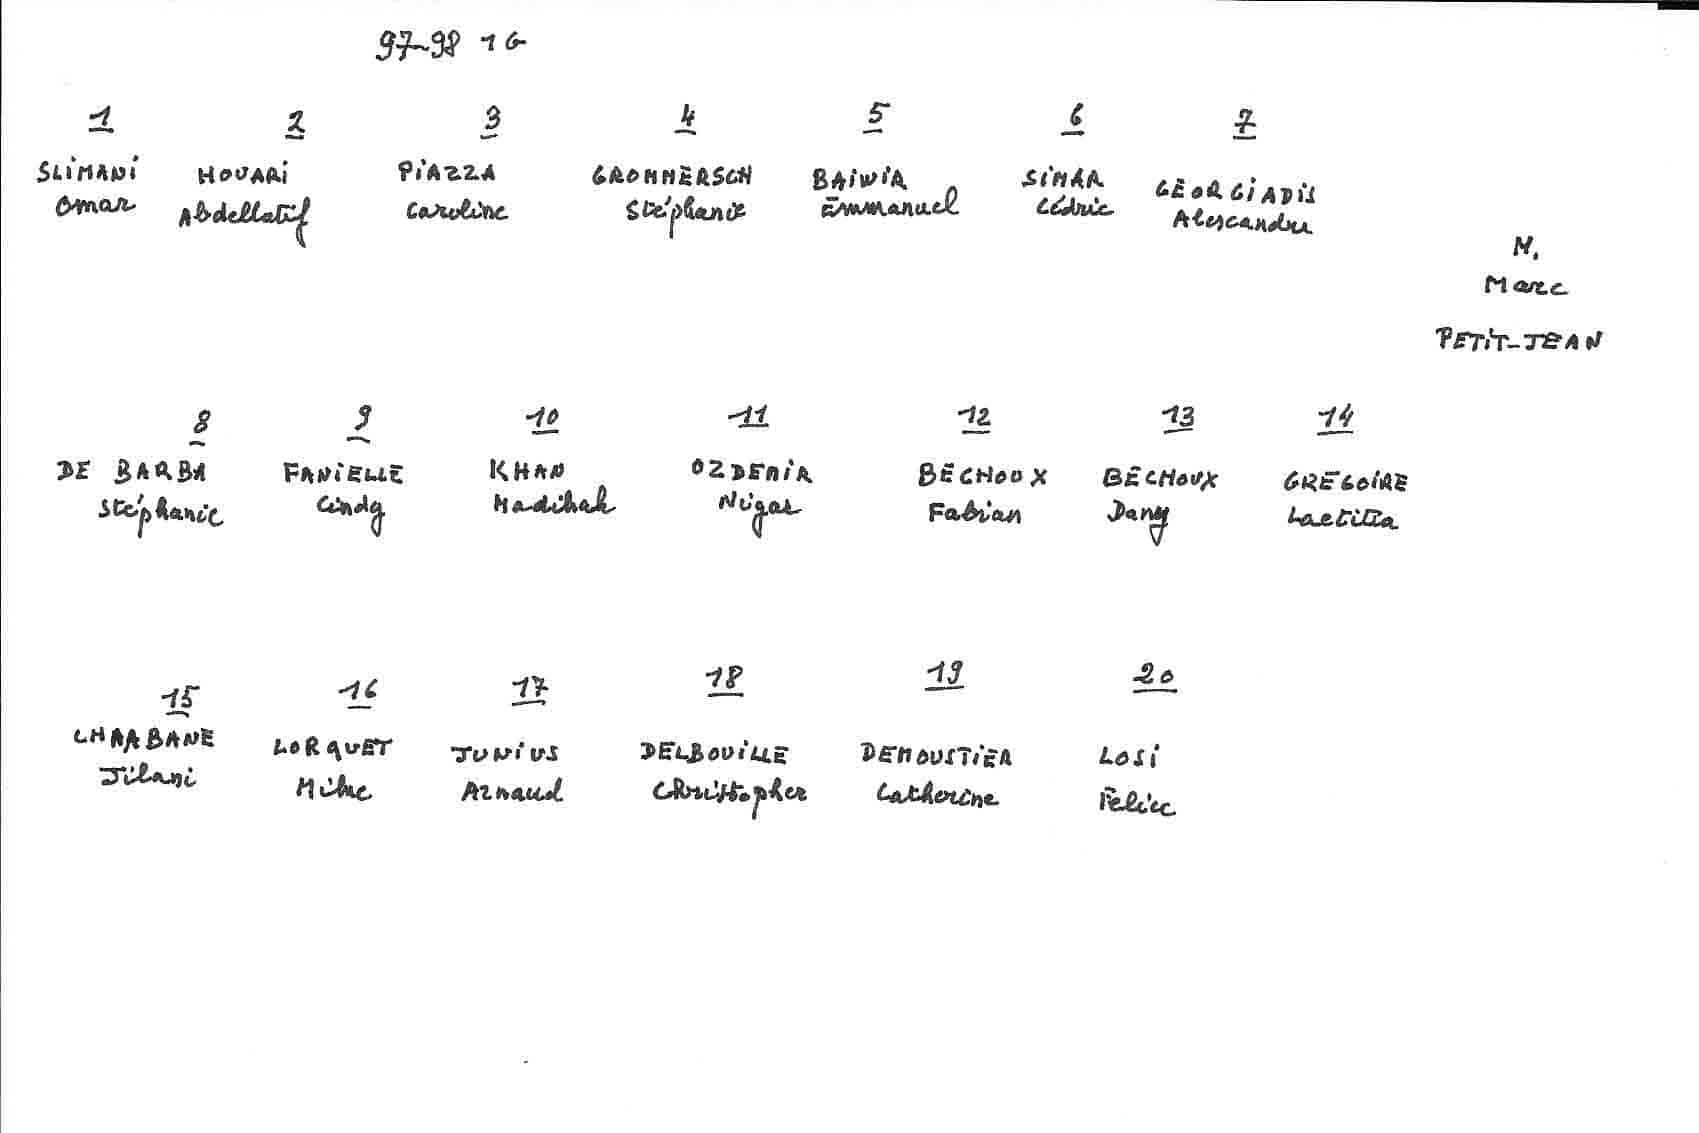 97-98 1G
1 2 3 4 5 6 7
SLIMANI HOUARI PIAZZA GROMMERSCH BAIWIR SIMAR GEORGIADIS
Omar Abdellatif Caroline Stéphanie Emmanuel Cédric Alexandre
M.
Marc
PETIT-JEAN
8 9 10 11 12 13 14
DE BARBA FANIELLE KHAN OZDEMIR BECHOUX BECHOUX GREGOIRE
Stéphanie Cindy Madihah Nigar Fabian Dany Laetitia
15 16 17 18 19 20
CHAABANE LORQUET JUNIUS DELBOUILLE DEMOUSTIER LOSI
Jilani Mike Arnaud Christopher Catherine